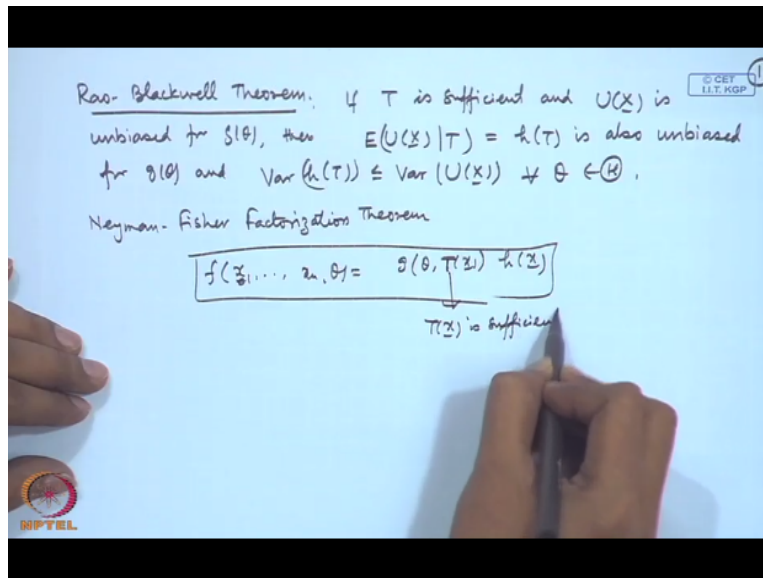 Rao-Blackwell Theorem: If T is sufficient and U(X) is
unbiased for g(θ), then E(U(X)|T) = h(T) is also unbiased
for g(θ) and Var(h(T)) ≤ Var(U(X)) ∀ θ ∈ Ⓗ.
Neyman-Fisher Factorization Theorem
f(x1, ..., xn, θ) = g(θ, T(x)) h(x)
T(x) is sufficien
© CET
I.I.T. KGP
1
NPTEL